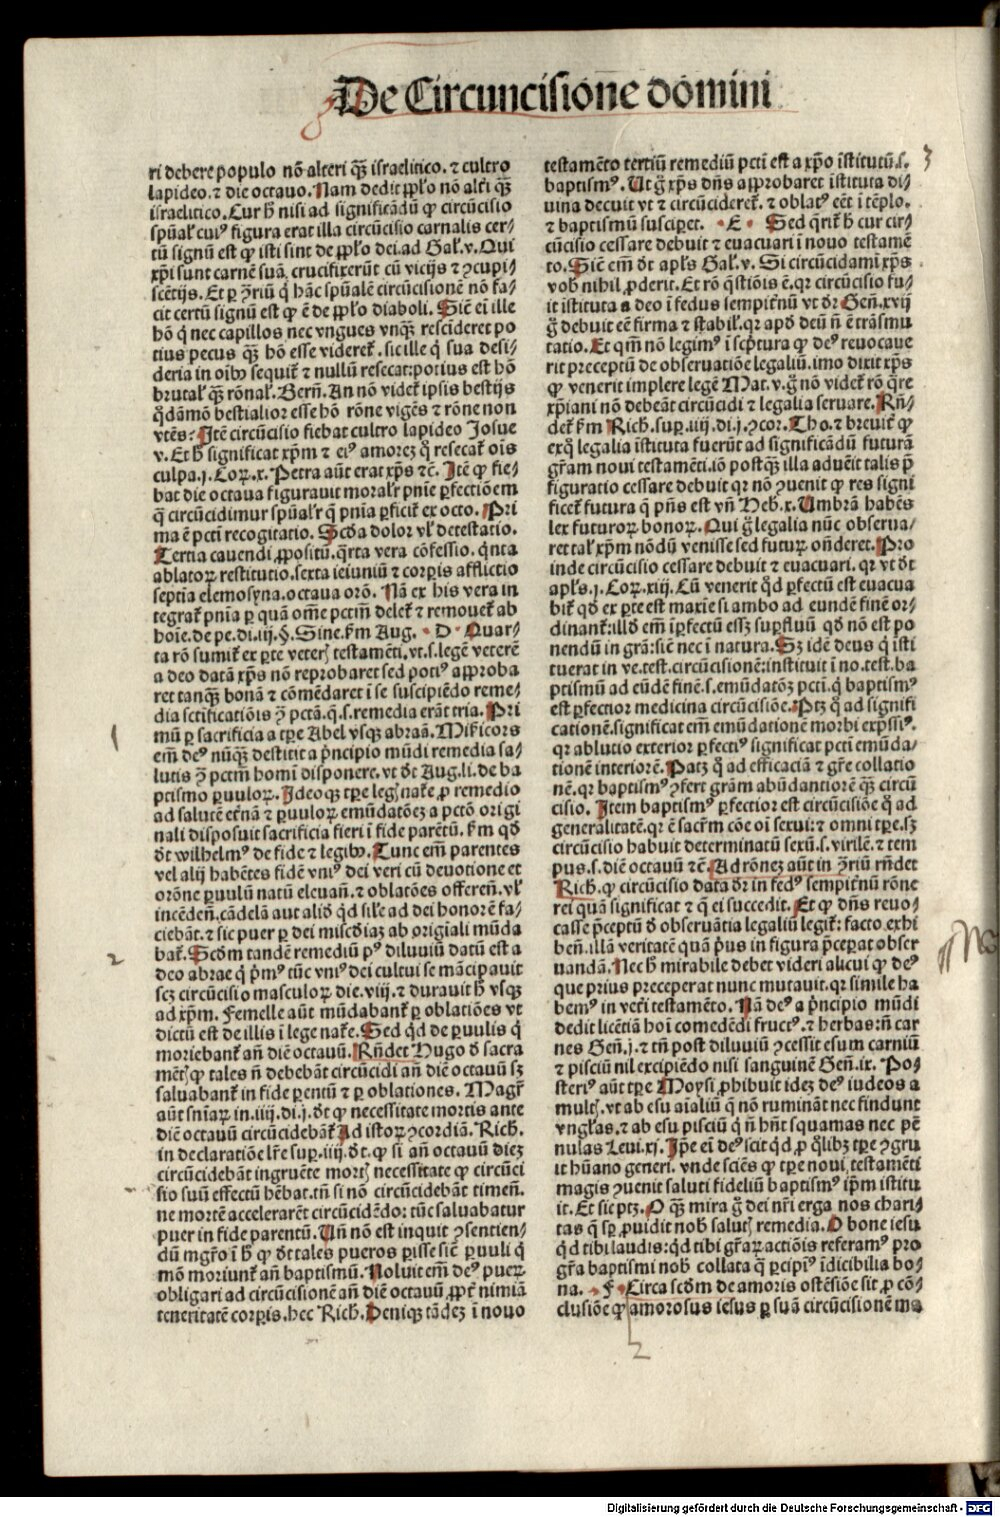 De Circuncisione domini
ri debere populo nō alteri q̄ȝ israelitico. ⁊ cultro
lapideo. ⁊ die octauo. Nam dedit ꝓplo nō alt̄i q̄ȝ
israelitico. Cur h̄ nisi ad significādū ꝙ circūcisio
spūaƚ cuiꝰ figura erat illa circūcisio carnalis cer⸗
tū signū est ꝙ isti sint de ꝓplo dei. ad Gaƚ. v. Qui
xp̄i sunt carnē suā crucifixerūt cū vicijs ⁊ ꝯcupi⸗
scētijs. Et ꝑ ꝯ̄riū q̇ hāc spūalē circūcisionē nō fa⸗
cit certū signū est ꝙ ē de ꝓplo diaboli. Sic̄ ei ille
hō q̇ nec capillos nec vngues vnq̄ȝ rescideret po
tius pecus q̄ȝ hō esse videret᷑. sic ille q̇ sua desi⸗
deria in oībꝰ sequit᷑ ⁊ nullū resecat: potius est hō
brutaƚ q̄ȝ rōnaƚ. Bern̄. An nō videt᷑ ipsis bestijs
q̇dāmō bestialior esse hō rōne vigēs ⁊ rōne non
vtēs? Itē circūcisio fiebat cultro lapideo Josue
v. Et h̄ significat xp̄m ⁊ eiꝰ amoreȝ q̇ resecat᷑ oīs
culpa. j. Coꝝ. x. Petra aūt erat xp̄s ⁊c̄. Itē ꝙ fie⸗
bat die octaua figurauit moraƚr pn̄ie ꝑfectiōem
q̄ circūcidimur spūaƚr q̄ pn̄ia ꝑficit᷑ ex octo. Pri
ma ē pctī recogitatio. Scd̄a dolor vƚ detestatio.
Tertia cauendi ꝓpositū. q̄rta vera cōfessio. q̇nta
ablatoꝝ restitutio. sexta ieiuniū ⁊ corꝑis afflictio
septīa elemosyna. octaua orō. Nā ex his vera in
tegrat᷑ pn̄ia ꝑ quā om̄e pctm̄ delet᷑ ⁊ remouet᷑ ab
hoīe. de pe. di. iij. §. Sine. ẜm Aug. · D · Quar⸗
ta rō sumit᷑ ex ꝑte veterꝭ testamēti. vt. s. legē veterē
a deo datā xp̄s nō reprobaret sed potiꝰ approba
ret tanq̄ȝ bonā ⁊ cōmēdaret ī se suscipiēdo reme⸗
dia sc̄tificatiōis ꝯ̄ pctā. q̄. s. remedia erāt tria. Pri
mū ꝑ sacrificia a tꝑe Abel vsqȝ abraā. Mīcors
em̄ deꝰ nūq̄ȝ destitit a pͥncipio mūdi remedia sa⸗
lutis ꝯ̄ pctm̄ homī disponere. vt d̄t Aug. li. de ba
ptismo ꝑuuloꝝ. Ideoqȝ tꝑe legꝭ nat᷑e ꝓ remedio
ad salutē et̄nā ⁊ ꝑuuloꝝ emūdatōeȝ a pctō origi
nali disposuit sacrificia fieri ī fide parētū. ẜm qd̄
d̄t wilhelmꝰ de fide ⁊ legibꝰ. Tunc em̄ parentes
vel alij habētes fidē vniꝰ dei veri cū deuotione et
orōne ꝑuulū natū eleuan̄. ⁊ oblatōes offeren̄. vƚ
incēden̄. cādelā aut alid̄ q̇d siƚe ad dei honorē fa⸗
ciebāt. ⁊ sic puer ꝑ dei miscd̄iaȝ ab origīali mūda
bat᷑. Scd̄m tandē remediū pꝰ diluuiū datū est a
deo abrae q̇ pͥmꝰ tūc vniꝰ dei cultui se mācipauit
scȝ circūcisio masculoꝝ die. viij. ⁊ durauit h̄ vsqȝ
ad xp̄m. Femelle aūt mūdabant᷑ ꝑ oblatiōes vt
dictū est de illis ī lege nat᷑e. Sed q̇d de ꝑuulis q̇
moriebant᷑ an̄ diē octauū. Rn̄det Hugo d̄ sacra
mētꝭ ꝙ tales n̄ debebāt circūcidi an̄ diē octauū sȝ
saluabant᷑ in fide ꝑentū ⁊ ꝑ oblationes. Magr̄
aūt sn̄iaꝝ in. iiij. di. j. d̄t ꝙ necessitate mortis ante
diē octauū circūcidebāt᷑ Ad istoꝝ ꝯcordiā. Rich.
in declaratōe lr̄e suꝑ. iiij. d̄t. ꝙ si an̄ octauū dieȝ
circūcidebāt ingruēte mortꝭ necessitate ꝙ circūci
sio suū effectū hēbat. tn̄ si nō circūcidebāt timen̄.
ne mortē accelerarēt circūcidēdo: tūc saluabatur
puer in fide parentū. Un̄ nō est inquit ꝯsentien⸗
dū mgr̄o ī h̄ ꝙ d̄t tales pueros ꝑisse sic̄ ꝑuuli q̇
mō moriunt᷑ an̄ baptismū. Noluit em̄ deꝰ pueꝝ
obligari ad circūcisionē an̄ diē octauū ꝓpt̄ nimiā
teneritatē corꝑis. hec Rich. Deniqȝ tādeȝ ī nouo
testamēto tertiū remediū pctī est a xp̄o īstitutū. s.
baptismꝰ. Ut g̊ xp̄s dn̄s approbaret īstituta di⸗
uina decuit vt ⁊ circūcideret᷑. ⁊ oblatꝰ eēt ī tēplo.
⁊ baptismū susciꝑet. · E · Sed q̄rit᷑ h̄ cur cir⸗
cūcisio cessare debuit ⁊ euacuari ī nouo testamē
to. Sic̄ em̄ d̄t apl̄s Gaƚ. v. Si circūcidami xp̄s
vob̄ nihil ꝓderit. Et rō q̄stiōis ē. qr circūcisio fu⸗
it īstituta a deo ī fedus sempit̄nū vt d̄r Gen̄. xvij
g̊ debuit eē firma ⁊ stabiƚ. qr apd̄ deū n̄ ē trāsmu
tatio. Et qm̄ nō legimꝰ ī scp̄tura ꝙ deꝰ reuocaue
rit preceptū de obseruatiōe legaliū. imo dixit xp̄s
ꝙ venerit implere legē Mat. v. g̊ nō videt᷑ rō q̄re
xp̄iani nō debeāt circūcidi ⁊ legalia seruare. Rn̄⸗
det᷑ ẜm Rich. suꝑ. iiij. di. j. ꝯcor. Tho. ⁊ breuit̄ ꝙ
exq̇ legalia īstituta fuerūt ad significādū futurā
gr̄am noui testamēti. iō postq̄ȝ illa aduēit talis p̄
figuratio cessare debuit qr nō ꝯuenit ꝙ res signi
ficet᷑ futura q̄ pn̄s est vn̄ Heb. x. Umbrā habēs
lex futuroꝝ bonoꝝ. Qui g̊ legalia nūc obserua⸗
ret taƚ xp̄m nōdū venisse sed futuꝝ on̄deret. Pro
inde circūcisio cessare debuit ⁊ euacuari. qr vt d̄t
apl̄s. j. Coꝝ. xiij. Cū venerit q̇d ꝑfectū est euacua
bit᷑ qd̄ ex ꝑte est maxīe si ambo ad eundē finē or⸗
dinant᷑: illd̄ em̄ īꝑfectū esset suꝑfluū qd̄ nō est po
nendū in grā: sic̄ nec ī natura. Sȝ idē deus q̇ īsti
tuerat in ve. test. circūcisionē: instituit ī no. test. ba
ptismū ad eūdē finē. s. emūdatōȝ pctī. q̇ baptismꝰ
est ꝑfectior medicina circūcisiōe. Ptȝ q̊ ad signifi
cationē. significat em̄ emūdationē morbi exp̄ssiꝰ.
qr ablutio exterior ꝑfectiꝰ significat pctī emūda⸗
tionē interiorē. Patȝ q̊ ad efficaciā ⁊ gr̄e collatio
nē. qr baptismꝰ ꝯfert grām abūdantiorē q̄ȝ circū
cisio. Item baptismꝰ ꝑfectior est circūcisiōe q̊ ad
generalitatē. qr ē sacr̄m cōe oī sexui: ⁊ omni tꝑe. sȝ
circūcisio habuit determinatū sexū. s. virilē. ⁊ tem
pus. s. diē octauū ⁊c̄. Ad rōneȝ aūt in ꝯ̄riū rn̄det
Rich. ꝙ circūcisio data d̄r in fedꝰ sempit̄nū rōne
rei quā significat ⁊ q̄ ei succedit. Et ꝙ dn̄s reuo⸗
casse p̄ceptū d̄ obseruātia legaliū legit᷑: facto exhi
ben̄. illā veritatē quā pͥus in figura p̄ceꝑat obser
uandā. Nec h̄ mirabile debet videri alicui ꝙ deꝰ
que prius preceperat nunc mutauit. qr simile ha
bemꝰ in vet̄i testamēto. Nā deꝰ a pͥncipio mūdi
dedit licētiā hoī comedēdi fructꝰ. ⁊ herbas: n̄ car
nes Gen̄. j. ⁊ tn̄ post diluuiū ꝯcessit esum carniū
⁊ pisciū nil excipiēdo nisi sanguinē Gen̄. ix. Po⸗
steriꝰ aūt tꝑe Moysi ꝓhibuit ideȝ deꝰ iudeos a
multꝭ. vt ab esu aīaliū q̄ nō rumināt nec findunt
vnglas. ⁊ ab esu pisciū q̇ n̄ hn̄t squamas nec pē
nulas Leui. xj. Ip̄e ei deꝰ scit q̇d ꝓ q̇libȝ tꝑe ꝯgru
it hūano generi. vnde sciēs ꝙ tꝑe noui testamēti
magis ꝯuenit saluti fideliū baptismꝰ ip̄m īstitu
it. Et sic ptȝ. O q̄ȝ mira g̊ dei nr̄i erga nos chari⸗
tas q̄ sꝑ ꝓuidit nob̄ salutꝭ remedia. O bone iesu
q̇d tibi laudis: q̇d tibi gr̄aꝝ actiōis referamꝰ pro
gr̄a baptismi nob̄ collata q̄ ꝑcipīꝰ īdicibilia bo⸗
na. · F · Circa scd̄m de amoris ostēsiōe sit ꝓ cō⸗
clusiōe ꝙ amorosus iesus ꝑ suā circūcisionē ma
1
2
3
2